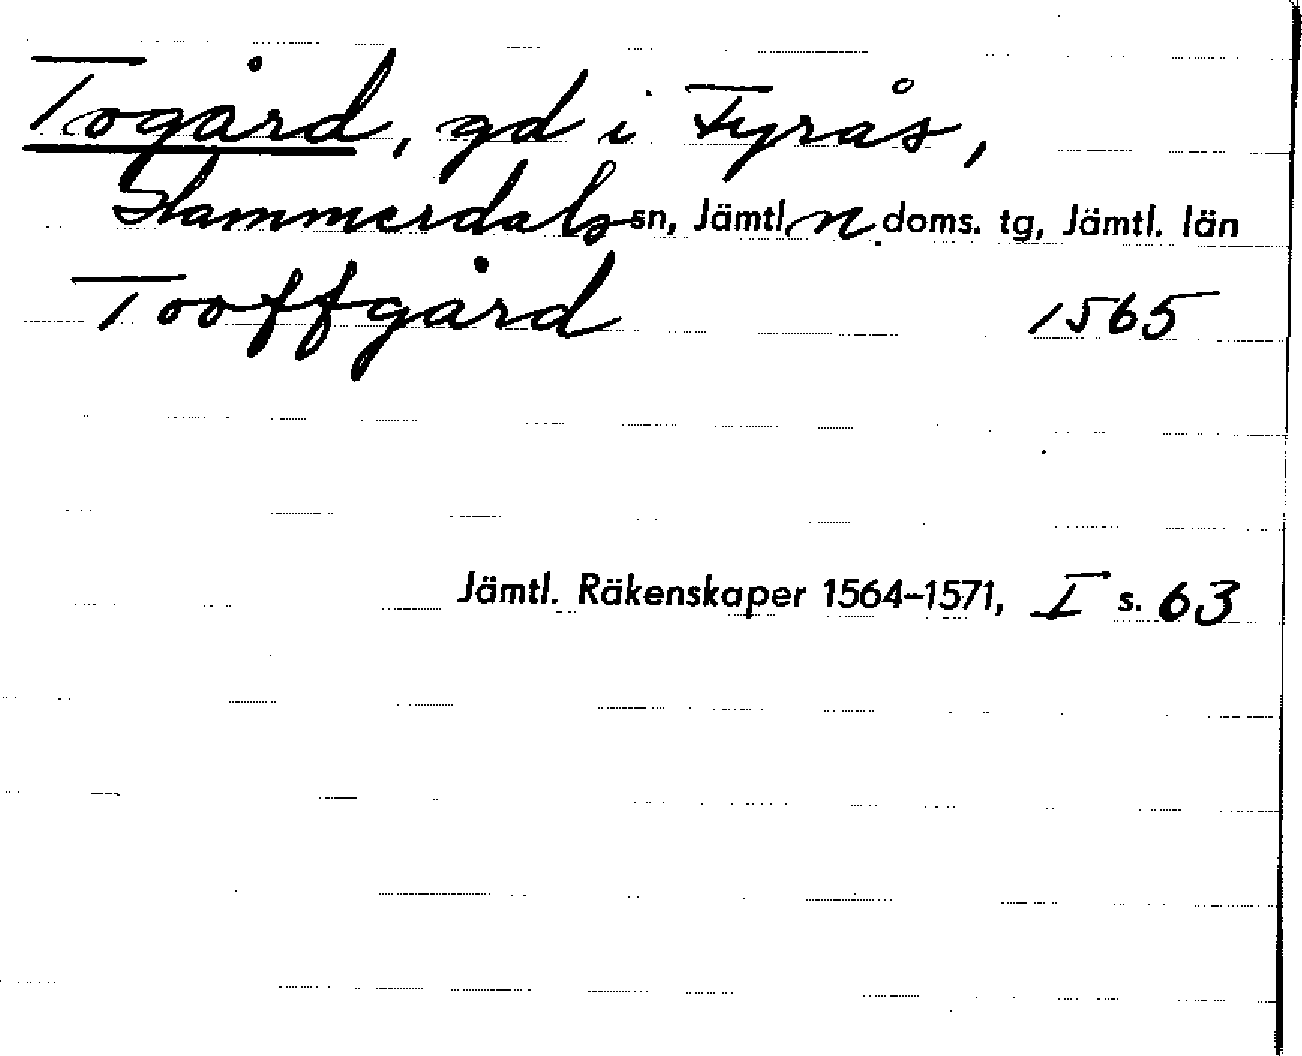 Togård, gd i Fyrås,
Hammerdals sn, Jämtl. n. doms. tg, Jämtl. län
Tooffgård 1565
Jämtl. Räkenskaper 1564–1571, I s. 63